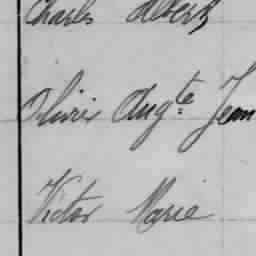 Charles Albert
Olivier Aug.te Jean
Victor Marie